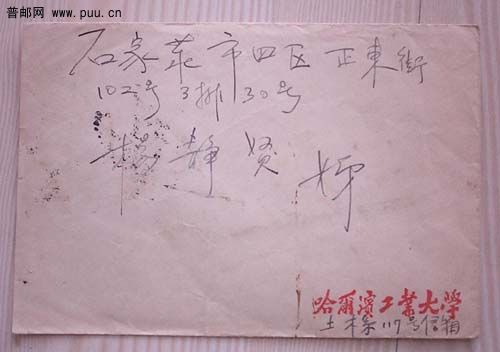 普邮网
www.puu.cn
石家莊市四区正東街
102号3排30号
楊静贤
哈爾濱工業大學
土木系117号信箱